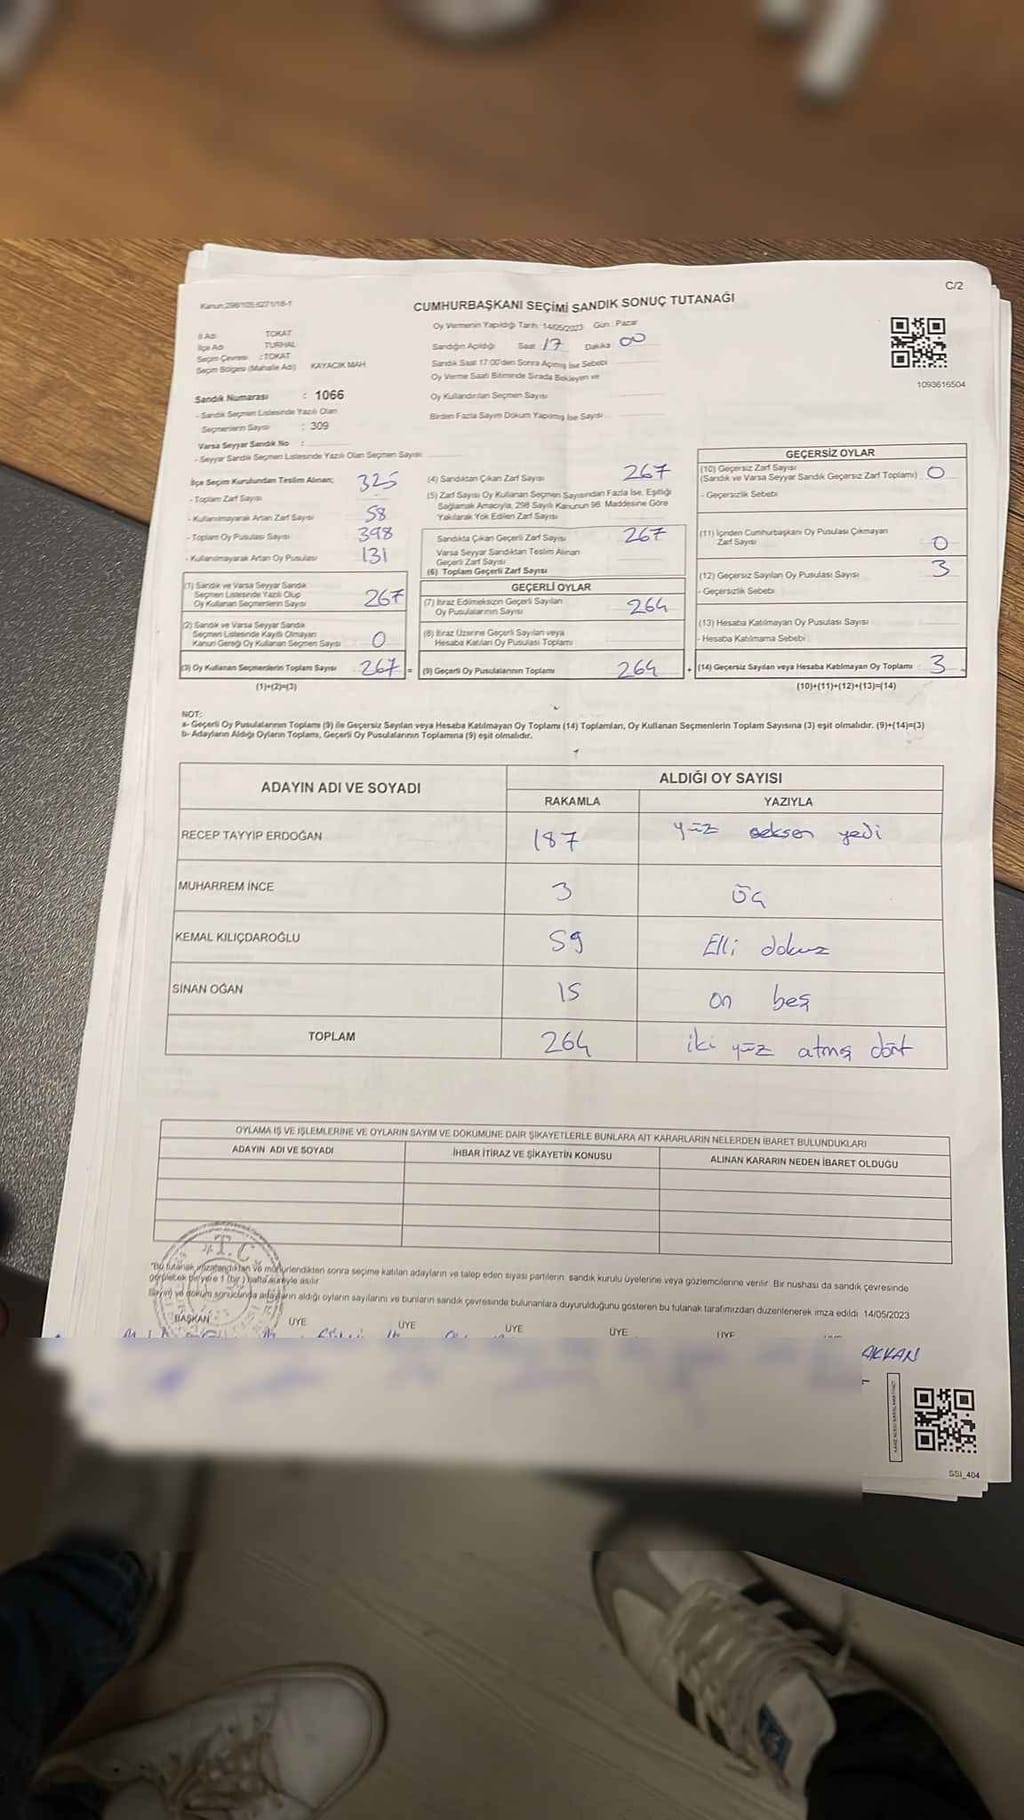 Kanun:298/105;6271/18-1
C/2
CUMHURBAŞKANI SEÇİMİ SANDIK SONUÇ TUTANAĞI
İl Adı TOKAT
İlçe Adı TURHAL
Seçim Çevresi : TOKAT
Seçim Bölgesi (Mahalle Adı) KAYACIK MAH.
Sandık Numarası : 1066
- Sandık Seçmen Listesinde Yazılı Olan
Seçmenlerin Sayısı : 309
Varsa Seyyar Sandık No :
- Seyyar Sandık Seçmen Listesinde Yazılı Olan Seçmen Sayısı
Oy Vermenin Yapıldığı Tarih :14/05/2023 Gün : Pazar
Sandığın Açıldığı Saat 17 Dakika 00
Sandık Saat 17:00'den Sonra Açılmış İse Sebebi
Oy Verme Saati Bitiminde Sırada Bekleyen ve
Oy Kullandırılan Seçmen Sayısı
Birden Fazla Sayım Döküm Yapılmış İse Sayısı
1093616504
İlçe Seçim Kurulundan Teslim Alınan; 325
- Toplam Zarf Sayısı
- Kullanılmayarak Artan Zarf Sayısı 58
- Toplam Oy Pusulası Sayısı 398
- Kullanılmayarak Artan Oy Pusulası 131
(1) Sandık ve Varsa Seyyar Sandık
Seçmen Listesinde Yazılı Olup
Oy Kullanan Seçmenlerin Sayısı 267
(2) Sandık ve Varsa Seyyar Sandık
Seçmen Listesinde Kayıtlı Olmayan
Kanun Gereği Oy Kullanan Seçmen Sayısı 0
(3) Oy Kullanan Seçmenlerin Toplam Sayısı 267 =
(1)+(2)=(3)
(4) Sandıktan Çıkan Zarf Sayısı 267
(5) Zarf Sayısı Oy Kullanan Seçmen Sayısından Fazla İse, Eşitliği
Sağlamak Amacıyla, 298 Sayılı Kanunun 98. Maddesine Göre
Yakılarak Yok Edilen Zarf Sayısı
Sandıkta Çıkan Geçerli Zarf Sayısı 267
Varsa Seyyar Sandıktan Teslim Alınan
Geçerli Zarf Sayısı
(6) Toplam Geçerli Zarf Sayısı
GEÇERLİ OYLAR
(7) İtiraz Edilmeksizin Geçerli Sayılan
Oy Pusulalarının Sayısı 264
(8) İtiraz Üzerine Geçerli Sayılan veya
Hesaba Katılan Oy Pusulası Toplamı
(9) Geçerli Oy Pusulalarının Toplamı 264 +
GEÇERSİZ OYLAR
(10) Geçersiz Zarf Sayısı
(Sandık ve Varsa Seyyar Sandık Geçersiz Zarf Toplamı) 0
- Geçersizlik Sebebi
(11) İçinden Cumhurbaşkanı Oy Pusulası Çıkmayan
Zarf Sayısı 0
(12) Geçersiz Sayılan Oy Pusulası Sayısı 3
- Geçersizlik Sebebi
(13) Hesaba Katılmayan Oy Pusulası Sayısı
- Hesaba Katılmama Sebebi
(14) Geçersiz Sayılan veya Hesaba Katılmayan Oy Toplamı 3
(10)+(11)+(12)+(13)=(14)
NOT:
a- Geçerli Oy Pusulalarının Toplamı (9) ile Geçersiz Sayılan veya Hesaba Katılmayan Oy Toplamı (14) Toplamları, Oy Kullanan Seçmenlerin Toplam Sayısına (3) eşit olmalıdır. (9)+(14)=(3)
b- Adayların Aldığı Oyların Toplamı, Geçerli Oy Pusulalarının Toplamına (9) eşit olmalıdır.
ADAYIN ADI VE SOYADI ALDIĞI OY SAYISI
RAKAMLA YAZIYLA
RECEP TAYYİP ERDOĞAN 187 yüz seksen yedi
MUHARREM İNCE 3 üç
KEMAL KILIÇDAROĞLU 59 Elli dokuz
SİNAN OĞAN 15 on beş
TOPLAM 264 iki yüz atmış dört
OYLAMA İŞ VE İŞLEMLERİNE VE OYLARIN SAYIM VE DÖKÜMÜNE DAİR ŞİKAYETLERLE BUNLARA AİT KARARLARIN NELERDEN İBARET BULUNDUKLARI
ADAYIN ADI VE SOYADI İHBAR İTİRAZ VE ŞİKAYETİN KONUSU ALINAN KARARIN NEDEN İBARET OLDUĞU
T.C
*Bu tutanak imzalandıktan ve mühürlendikten sonra seçime katılan adayların ve talep eden siyasi partilerin sandık kurulu üyelerine veya gözlemcilerine verilir. Bir nushası da sandık çevresinde
görülecek bir yere 1 (bir) hafta süreyle asılır.
Sayım ve döküm sonucunda adayların aldığı oyların sayılarını ve bunların sandık çevresinde bulunanlara duyurulduğunu gösteren bu tutanak tarafımızdan düzenlenerek imza edildi. 14/05/2023
BAŞKAN ÜYE ÜYE ÜYE ÜYE ÜYE
AKKAN
SSI_404